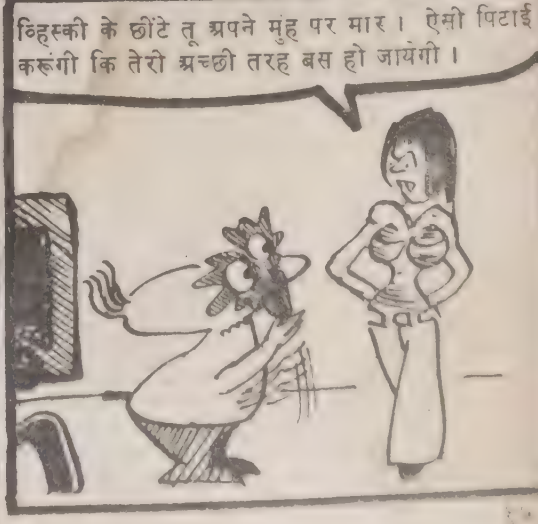 व्हिस्की के छींटे तू अपने मुंह पर मार । ऐसी पिटाई
करूंगी कि तेरी अच्छी तरह बस हो जायेगी ।